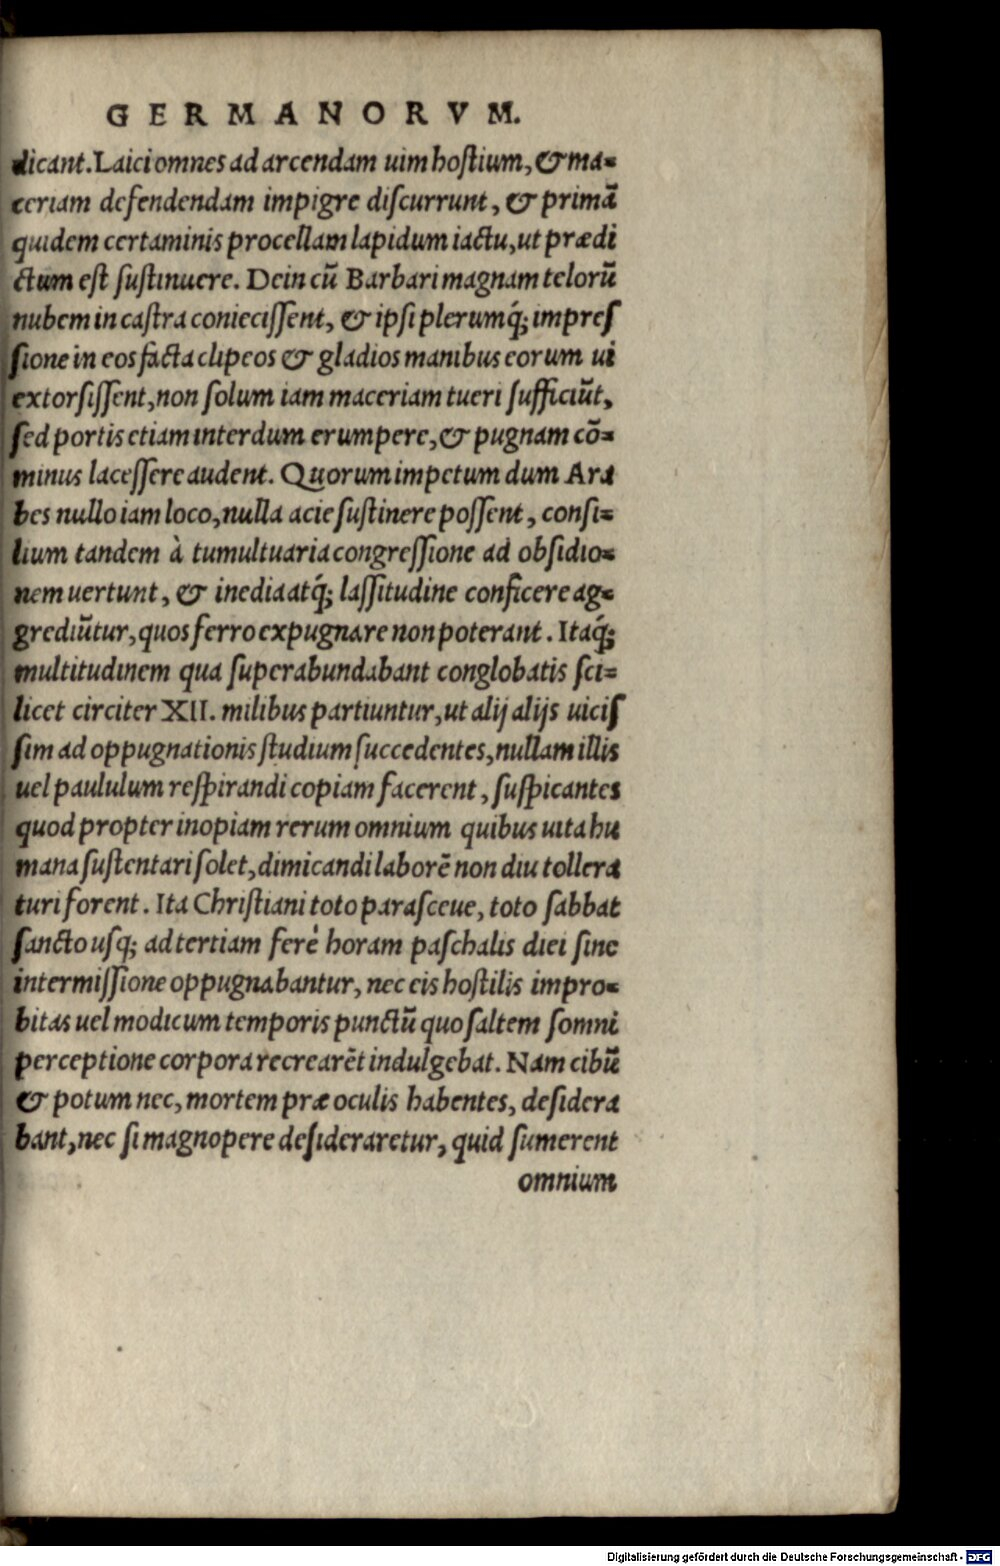 GERMANORVM.
dicant. Laici omnes ad arcendam uim hostium, & ma=
ceriam defendendam impigre discurrunt, & primã
quidem certaminis procellam lapidum iactu, ut prædi
ctum est sustinuere. Dein cũ Barbari magnam telorũ
nubem in castra coniecissent, & ipsi plerumq́; impres
sione in eos facta clipeos & gladios manibus eorum ui
extorsissent, non solum iam maceriam tueri sufficiũt,
sed portis etiam interdum erumpere, & pugnam cõ=
minus lacessere audent. Quorum impetum dum Ara
bes nullo iam loco, nulla acie sustinere possent, consi=
lium tandem à tumultuaria congressione ad obsidio=
nem uertunt, & inedia atq́; lassitudine conficere ag=
grediũtur, quos ferro expugnare non poterant. Itaq́;
multitudinem qua superabundabant conglobatis sci=
licet circiter XII. milibus partiuntur, ut alij alijs uicis
sim ad oppugnationis studium succedentes, nullam illis
uel paululum respirandi copiam facerent, suspicantes
quod propter inopiam rerum omnium quibus uita hu
mana sustentari solet, dimicandi laborẽ non diu tollera
turi forent. Ita Christiani toto parasceue, toto sabbat
sancto usq; ad tertiam ferè horam paschalis diei sine
intermissione oppugnabantur, nec eis hostilis impro=
bitas uel modicum temporis punctũ quo saltem somni
perceptione corpora recrearẽt indulgebat. Nam cibũ
& potum nec, mortem præ oculis habentes, desidera
bant, nec si magnopere desideraretur, quid sumerent
omnium
Digitalisierung gefördert durch die Deutsche Forschungsgemeinschaft - DFG